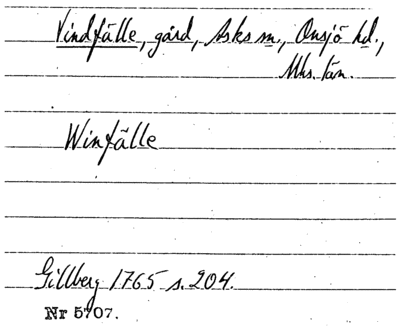 Vindfälle, gård, Asks sn., Onsjö hd.,
Mhs. län.
Winfälle
Gillberg 1765 s. 204.
Nr 5707.